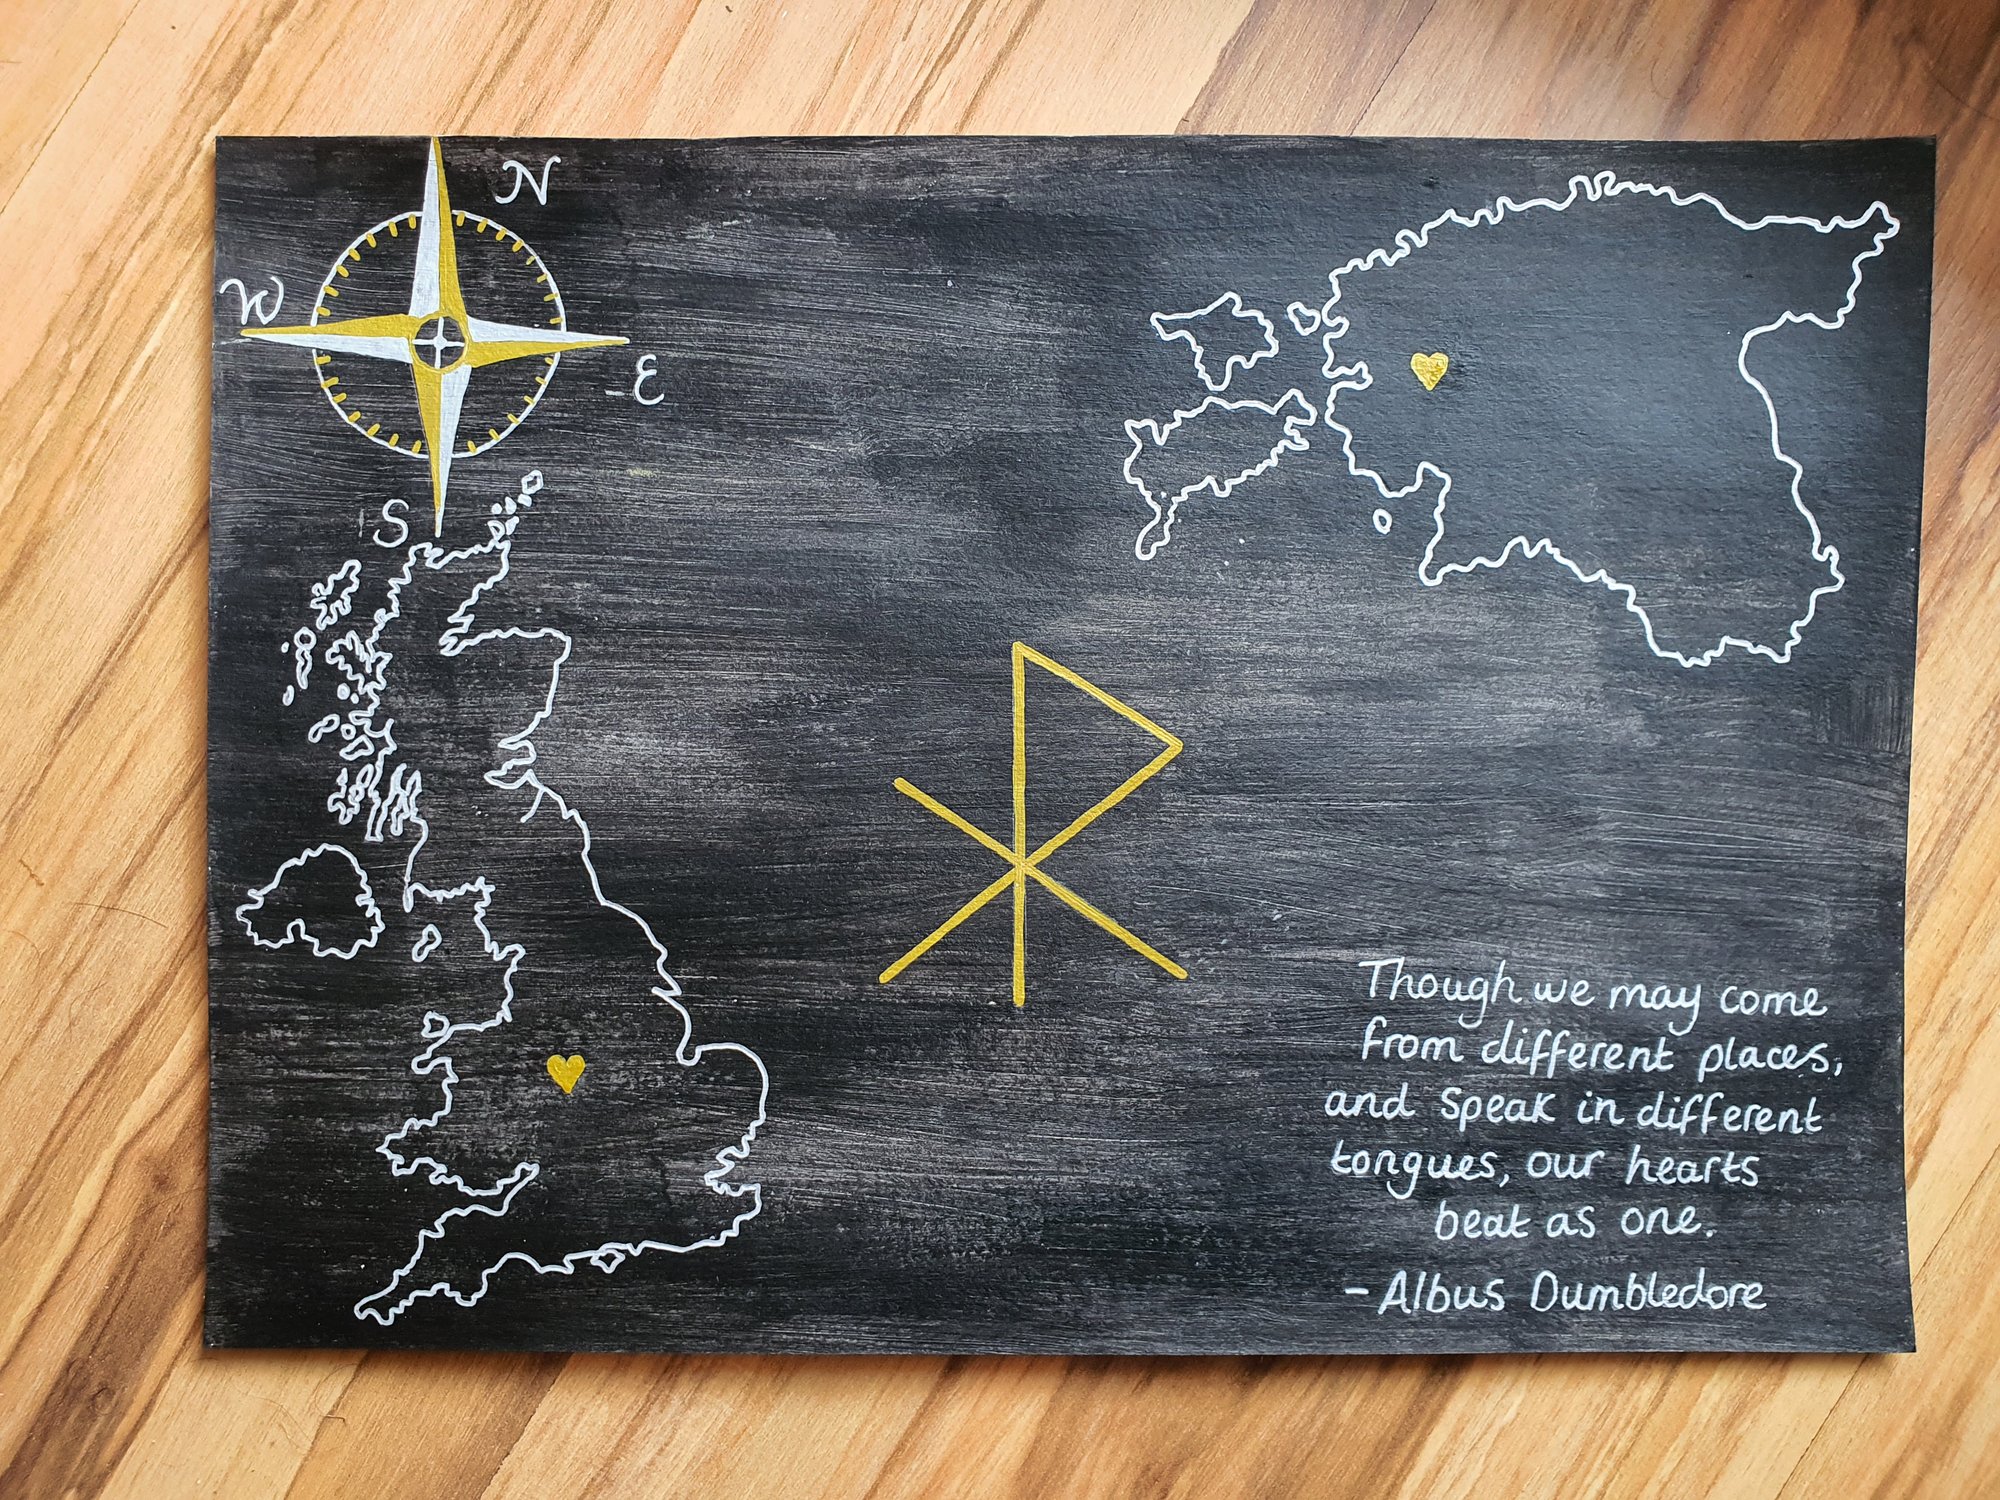 N
W
E
S
Though we may come
from different places,
and speak in different
tongues, our hearts
beat as one.
- Albus Dumbledore